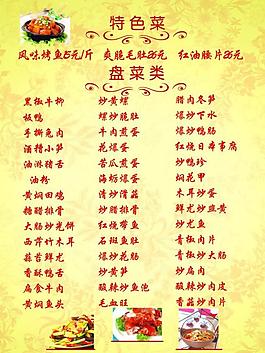 特色菜
风味烤鱼5元/斤 爽脆毛肚26元 红油腰片26元
盘菜类
黑椒牛柳 炒黄螺 腊肉冬笋
板鸭 螺炒脆肚 爆炒下水
手撕兔肉 牛肉煎蛋 爆炒鸭肠
酒糟小笋 花爆蛋 红烧日本豆腐
油淋猪舌 苦瓜煎蛋 炒鸭珍
油粉 海蛎爆蛋 焖花甲
黄焖田鸡 清炒滑菇 木耳炒蛋
糖醋排骨 炒腊排骨 鲜尤炒韭黄
大肠炒光饼 红烧带鱼 炒鱼片
西芹竹木耳 石斑鱼肚 青椒肉片
蒜苔鲜尤 爆炒花肠 青椒炒蛋
香酥鸭舌 炒黄笋 炒扁肉
扁食牛肉 酸辣炒鱼泡 酸辣炒肉皮
黄焖鱼头 毛血旺 香菇炒肉片